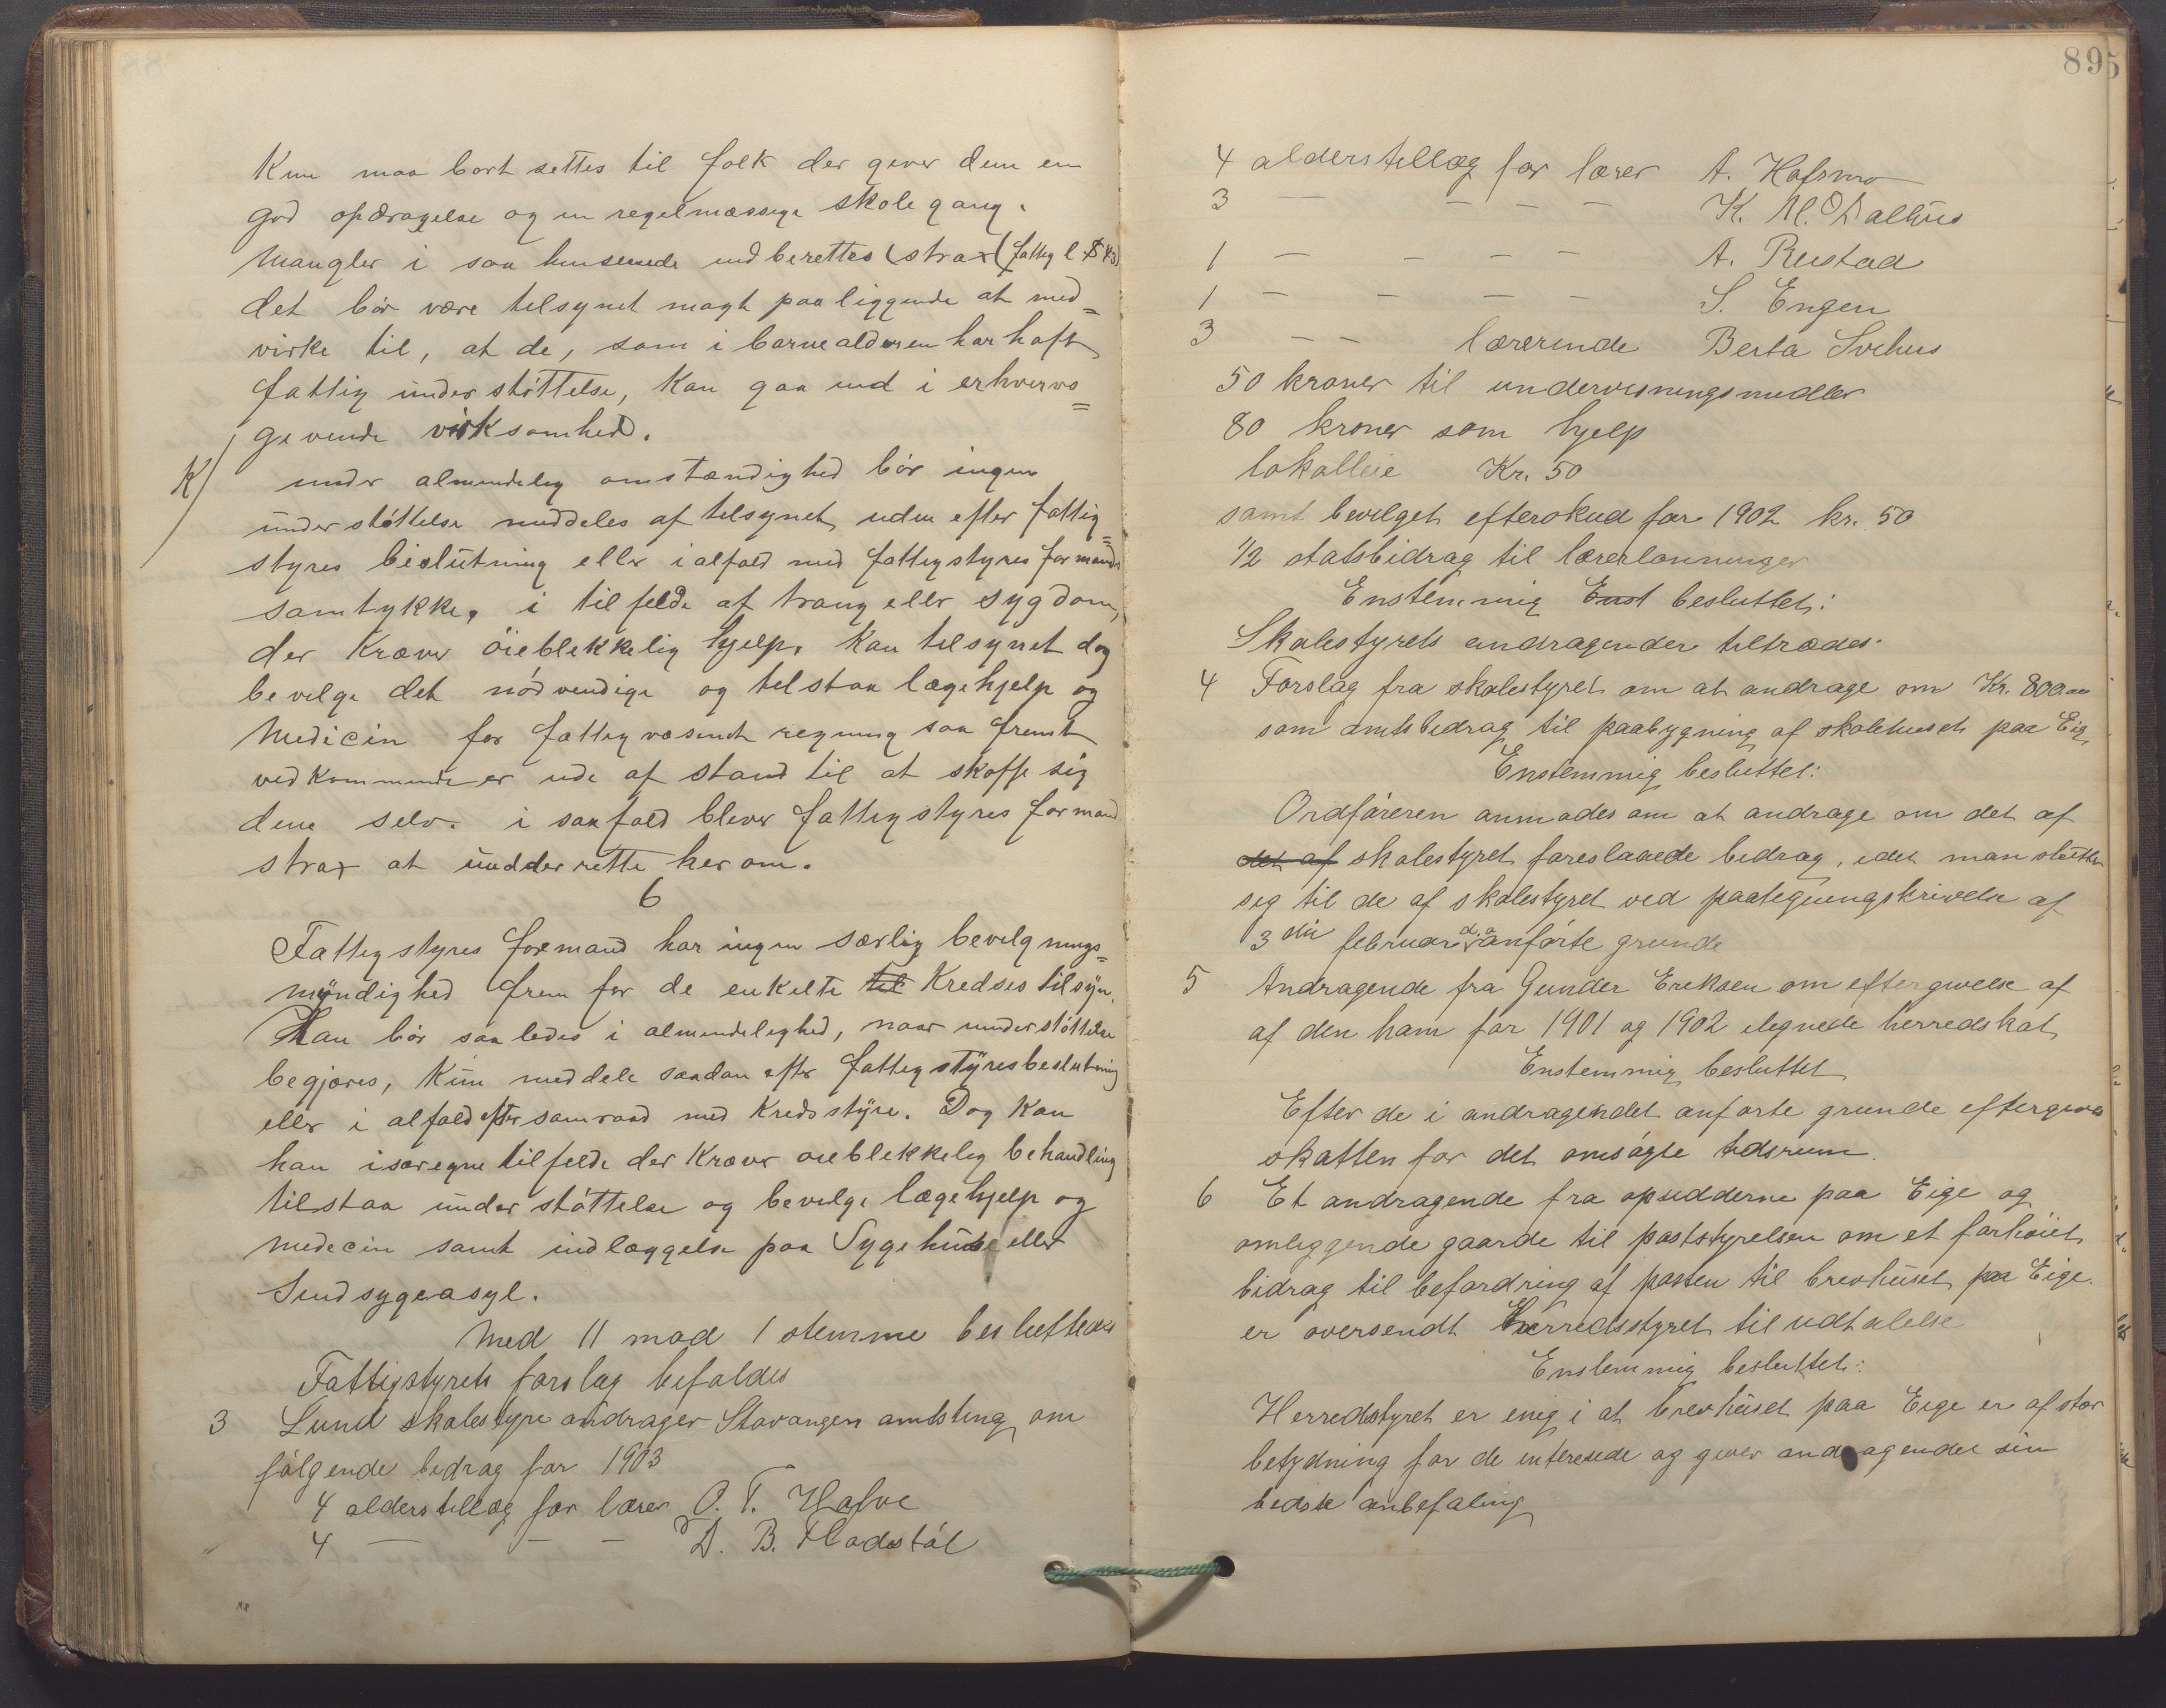 Kun maa bort settes til folk der giver dem en
god opdragelse og en regelmæssige skole gang.
Mangler i saa henseende indberettes (strax (fattig l § 43)
det bör være tilsynet magt paaliggende at med=
virke til, at de, som i barnealderen har haft
fattig understöttelse, kan gaa ind i erhvervs=
givende virksomhed.
K/ under almindelig omstændighed bör ingen
understöttelse meddeles af tilsynet uden efter fattig=
styres beslutning eller ialfald med fattigstyres formands
samtykke, i tilfelde af trang eller sygdom,
der kræver öieblikkelig hjelp, kan tilsynet dog
bevilge det nödvendige og tilstaa lægehjelp og
Medicin for fattigvæsenet regning saa fremt
vedkommende er ude af stand til at skaffe sig
dem selv. i saafald bliver fattigstyres formand
strax at underrette herom.
6
Fattigstyres formand har ingen særlig bevilgnings=
myndighed frem for de enkelte til Kredses tilsyn.
Han bör saaledes i almindelighed, naar understöttelse
begjæres, kun meddele saadan efter fattigstyres beslutning
eller i alfald efter samraad med Kredsstyre. Dog kan
han isæregne tilfelde der kræver öieblikkelig behandling
tilstaa understöttelse og bevilge lægehjelp og
medecin samt indlæggelse paa Sygehuse eller
Sindsygeasyl.
Med 11 mod 1 stemme besluttedes
Fattigstyrets forslag befaldes
3 Lund skolestyre andrager Stavanger amtsting om
fölgende bidrag for 1903
4 alderstillæg for lærer O. T. Hafve
4 — — — D. B. Fladstöl
895
4 alderstillæg for lærer A. Hafsmo
3 — — — — K. M. Dalhus
1 — — — — A. Rustad
1 — — — — S. Engen
3 — — lærerinde Berta Svehus
50 kroner til undervisningsmidler
80 kroner som hjelp
lokalleie Kr. 50
samt bevilget efterskud for 1902 kr. 50
1/2 statsbidrag til lærerlønninger
Enstemmig Enst besluttet:
Skolestyrets andragender tiltrædes.
4 Forslag fra skolestyret om at andrage om Kr. 800.00
som amtsbidrag til paabygning af skolehuset paa Eig
Enstemmig besluttet:
Ordföreren anmodes om at andrage om det af
det af skolestyret foreslaaede bidrag, idet man slutter
sig til de af skolestyret ved paategningskrivelse af
3die februar d.a anförte grunde
5 Andragende fra Gunder Eriksen om eftergivelse af
af den ham for 1901 og 1902 ilignede herredskat
Enstemmig besluttet
Efter de i andragendet anförte grunde eftergives
skatten for det omsögte tidsrum.
6 Et andragende fra opsidderne paa Eige og
omliggende gaarde til poststyrelsen om et forhöiet
bidrag til befordring af posten til brevhuset paa Eige.
er oversendt Herredsstyret til udtalelse
Enstemmig besluttet:
Herredstyret er enig i at brevhuset paa Eige er af stor
betydning for de interesede og giver andragendet sin
bedste anbefaling